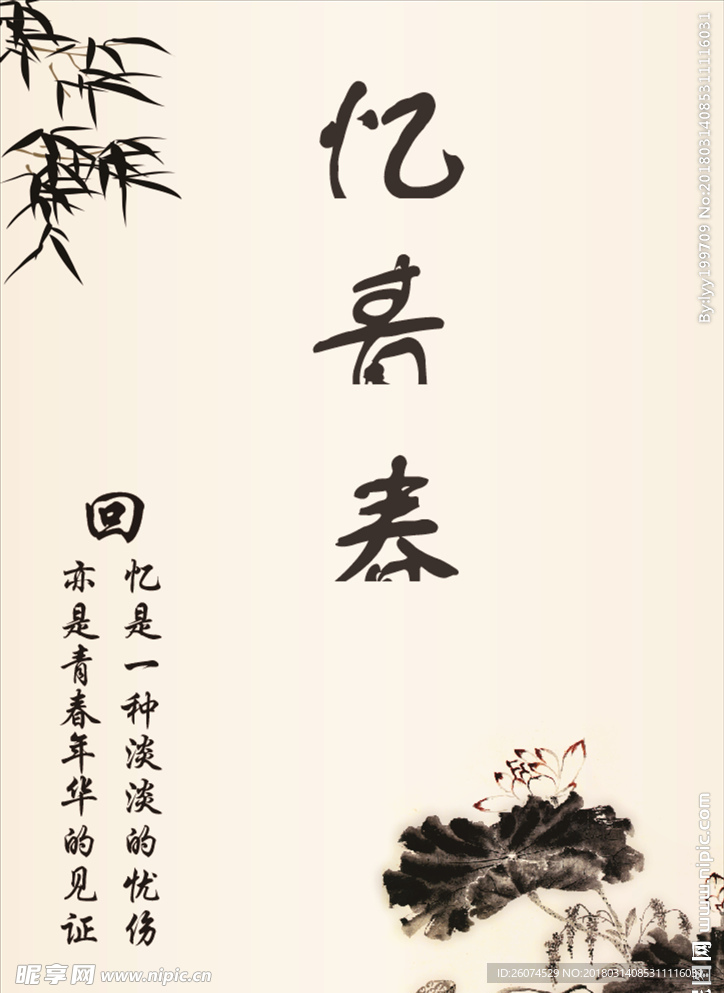 忆青春
回
忆是一种淡淡的忧伤
亦是青春年华的见证
By:lyy199709 No:20180314085311116031
昵享网 www.nipic.cn
ID:26074529 NO:20180314085311116031
www.nipic.com